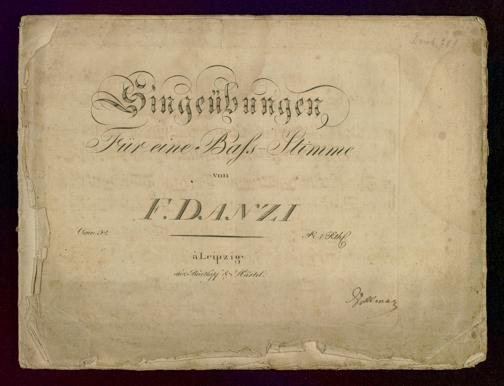 Singeübungen
Für eine Bass-Stimme
von
F. DANZI
à Leipzig
chez Breitkopf & Härtel.